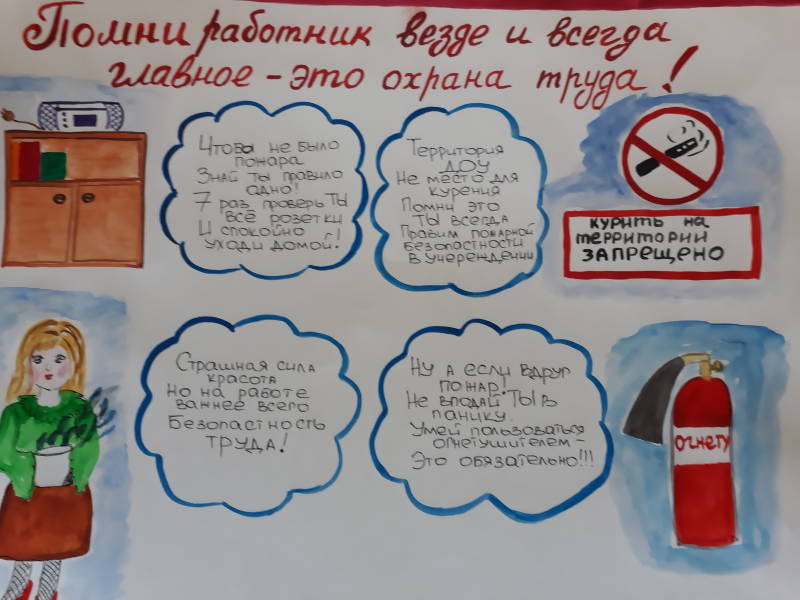 Помни работник везде и всегда
главное - это охрана труда!
Чтоба не было
пожара
Знай ты правило
одно!
7 раз проверь ТЫ
ВСЁ розетки
И спокойно
уходи домой!
Территория
ДОУ
Не место для
курения
Помни это
ТЫ всегда
Правим пожарной
безопастности
в учереждении
КУРИТЬ на
территории
ЗАПРЕЩЕНО
Страшная сила
красота
Но на работе
ваннее всего
Безопастность
ТРУДА!
Ну а если вдруг
пожар!
Не впадай ТЫ в
панику.
Умей пользоваться
огнетушителем -
Это обязательно!!!
огнету